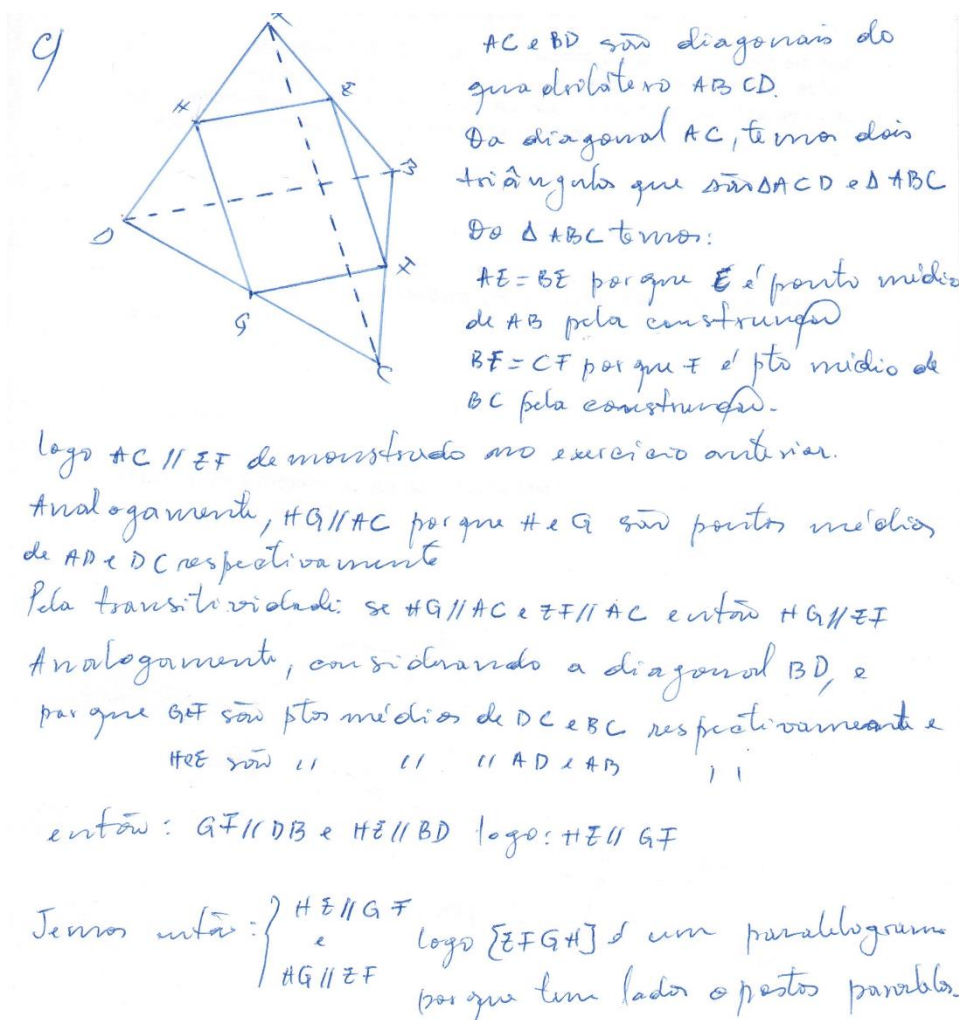 c)
A
H
E
B
D
F
G
C
AC e BD são diagonais do
quadrilátero ABCD.
Da diagonal AC, temos dois
triângulos que são ΔACD e Δ ABC
Do Δ ABC temos:
AE = BE porque E é ponto médio
de AB pela construção
BF = CF porque F é pto médio de
BC pela construção.
logo AC // EF demonstrado no exercício anterior.
Analogamente, HG//AC porque H e G são pontos médios
de AD e DC respectivamente
Pela transitividade: se HG//AC e EF//AC então HG//EF
Analogamente, considerando a diagonal BD, e
porque G e F são ptos médios de DC e BC respectivamente e
H e E são " " " AD e AB "
então: GF//DB e HE//BD logo: HE // GF
Temos então: { HE//GF
e
HG//EF
logo [EFGH] é um paralelogramo
porque tem lados opostos paralelos.